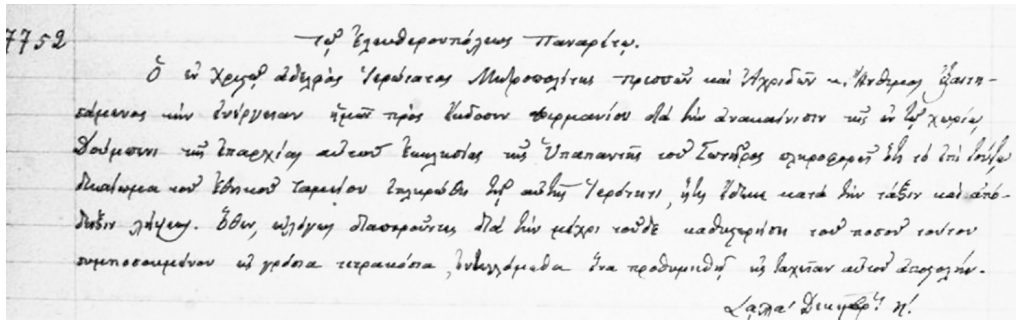 7752
Τῷ Ἐλευθερουπόλεως Παναρέτῳ.
Ὁ ἐν Χριστῷ ἀδελφὸς Ἱερώτατος Μητροπολίτης Πρεσπῶν καὶ Ἀχριδῶν κ. Ἄνθιμος ἐξαιτη-
σάμενος τὴν ἐνέργειαν ἡμῶν πρὸς ἔκδοσιν φιρμανίου διὰ τὴν ἀνακαίνισιν τῆς ἐν τῷ χωρίῳ
Δούμπενι τῆς ἐπαρχίας αὐτοῦ ἐκκλησίας τῆς Ὑπαπαντῆς τοῦ Σωτῆρος πληροφορεῖ ὅτι τὸ ἐπὶ τούτῳ
δικαίωμα τοῦ Ἐθνικοῦ Ταμείου ἐπληρώθη τῇ αὐτῆς Ἱερότητι, ἥτις ἔδωκε κατὰ τὴν τάξιν καὶ ἀπό-
δειξιν λήψεως. Ὅθεν, εὐλόγως διαποροῦντες διὰ τὴν μέχρι τοῦδε καθυστέρησιν τοῦ ποσοῦ τούτου
συμποσουμένου εἰς γρόσια τετρακόσια, ἐντελλόμεθα ἵνα προθυμηθῇ εἰς ταχεῖαν αὐτοῦ ἀποστολήν.
͵αωλα′ Δεκεμβρ. η′.